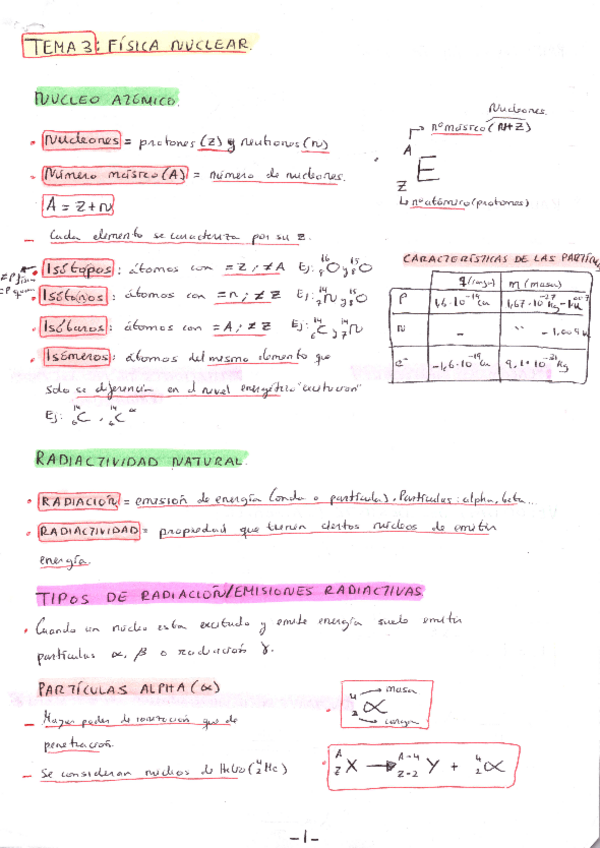 TEMA 3: FÍSICA NUCLEAR.
NÚCLEO ATÓMICO.
Nucleones.
• Nucleones = protones (Z) y neutrones (n)
nº másico (N+Z)
A
E
Z
nº atómico (protones)
• Número másico (A) = número de nucleones.
A = Z + N
– Cada elemento se caracteriza por su Z.
• Isótopos: átomos con = Z; ≠ A Ej: ¹⁶₈O y ¹⁵₈O
• Isótonos: átomos con = n; ≠ Z Ej: ¹⁴₇N y ¹⁵₈O
• Isóbaros: átomos con = A; ≠ Z Ej: ¹⁴₆C y ¹⁴₇N
• Isómeros: átomos del mismo elemento que
solo se diferencian en el nivel energético "excitación"
Ej: ¹⁴₆C, ¹⁴₆C
CARACTERÍSTICAS DE LAS
q (carga) m (masa)
P 1,67·10⁻²⁷ Kg
n – "
e⁻ -1,6·10⁻¹⁹ 9,1·10⁻³¹ Kg
RADIACTIVIDAD NATURAL.
• RADIACIÓN = emisión de energía (onda o partícula). Partículas: alpha, beta...
• RADIACTIVIDAD = propiedad que tienen ciertos núcleos de emitir
energía.
TIPOS DE RADIACIÓN/EMISIONES RADIACTIVAS
• Cuando un núcleo esta excitado y emite energía suele emitir
partículas α, β o radiación γ.
PARTÍCULAS ALPHA (α)
• ⁴₂α masa
carga
– Mayor poder de ionización que de
penetración.
– Se consideran núcleos de Helio (⁴₂He)
• ᴬ_Z X → ᴬ⁻⁴_Z-2 Y + ⁴₂α
-1-